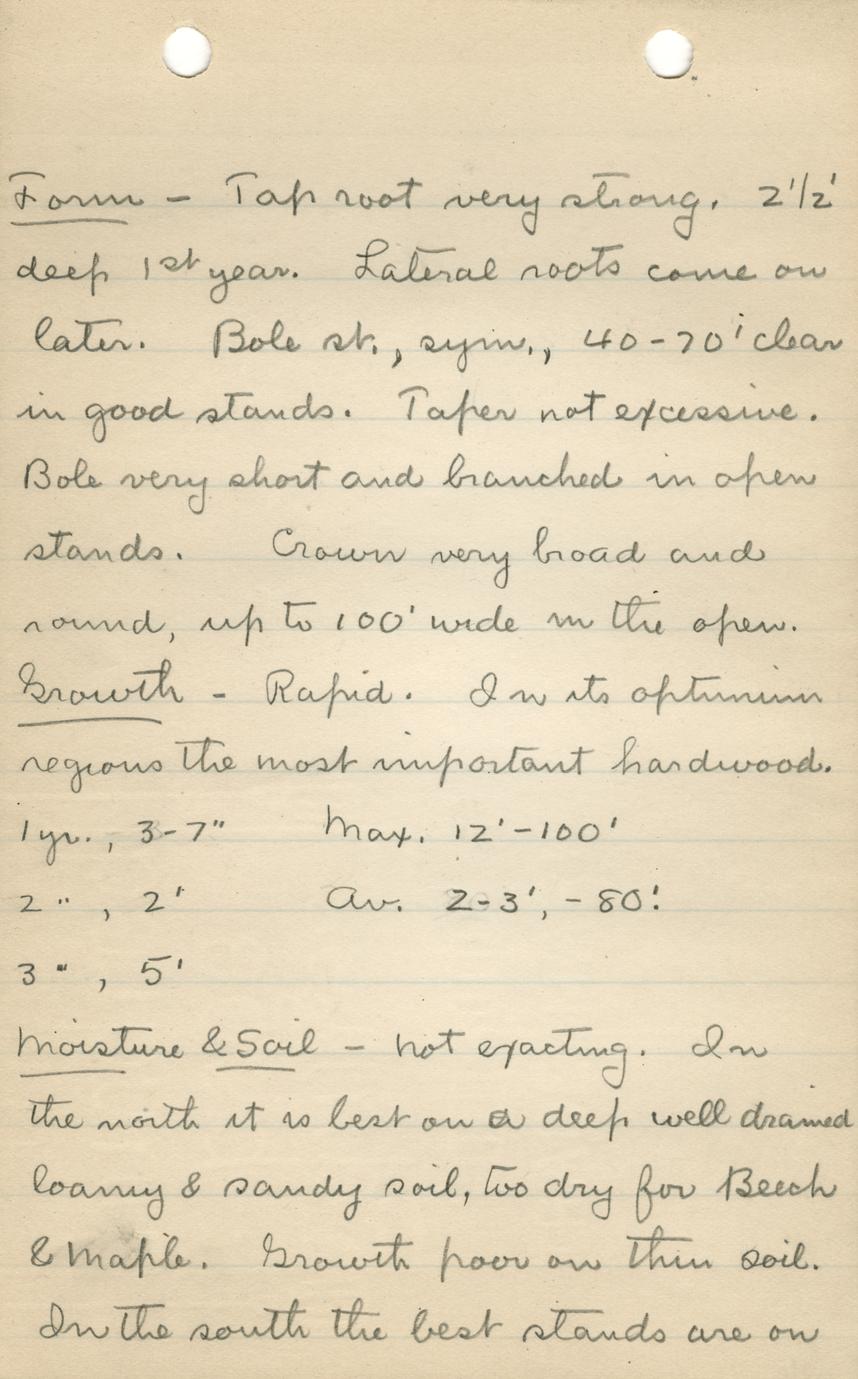 Form - Tap root very strong. 2'/2'
deep 1st year. Lateral roots come on
later. Bole st., sym., 40-70' clear
in good stands. Taper not excessive.
Bole very short and branched in open
stands. Crown very broad and
round, up to 100' wide in the open.
Growth - Rapid. In its optimum
regions the most important hardwood.
1 yr., 3-7" Max. 12'-100'
2 " , 2' Av. 2-3', - 80'.
3 " , 5'
Moisture & Soil - not exacting. In
the north it is best on a deep well drained
loamy & sandy soil, too dry for Beech
& Maple. Growth poor on thin soil.
In the south the best stands are on